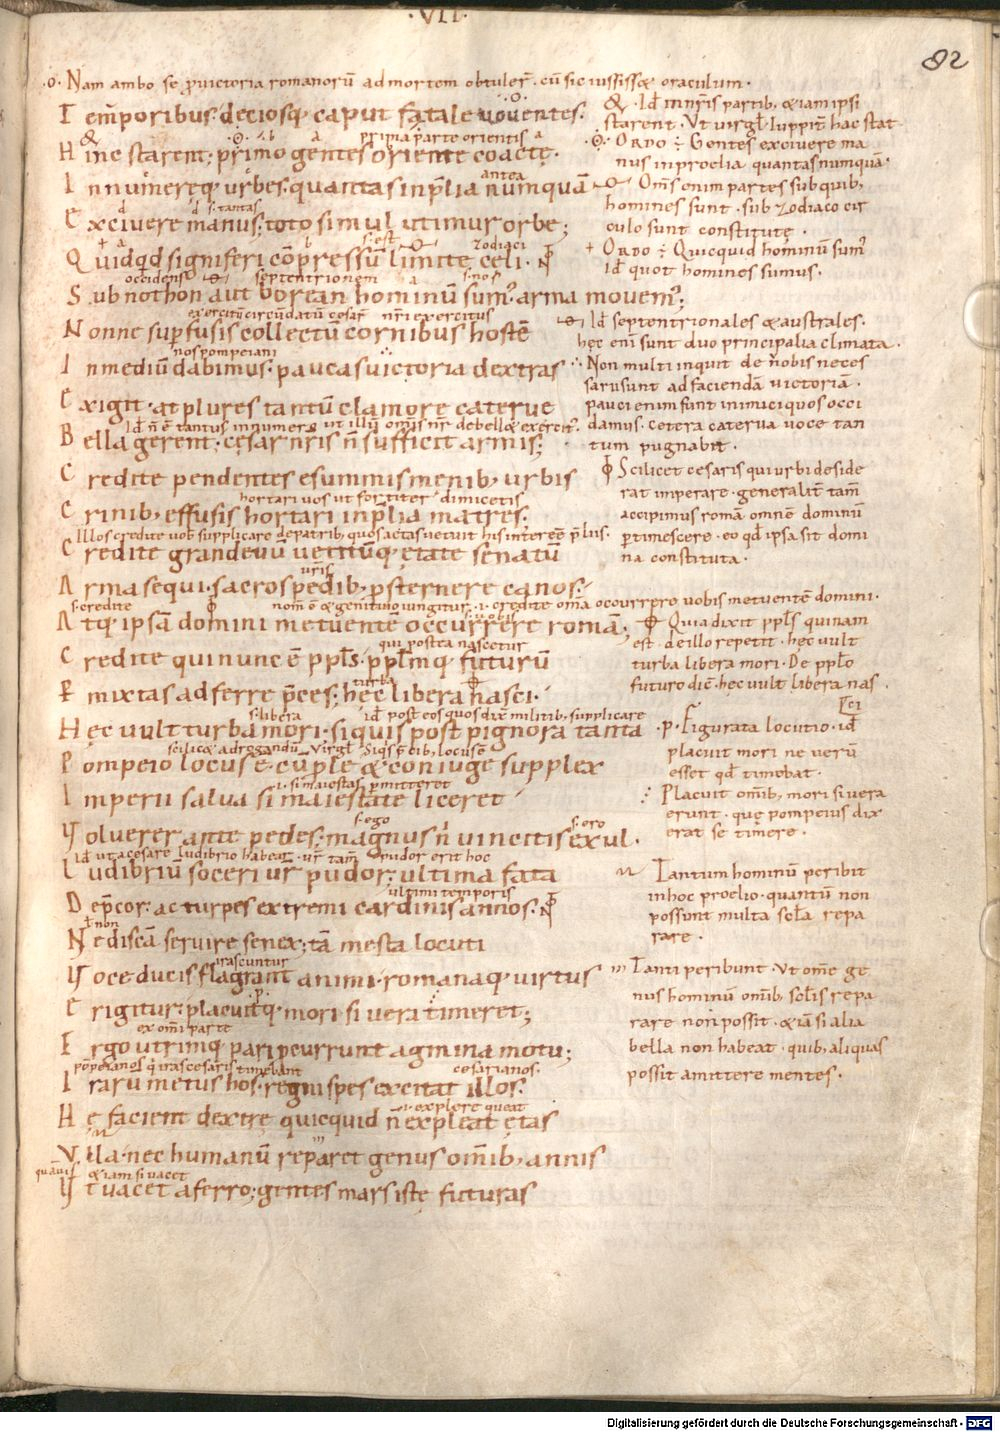 ·VII·
82
·o· Nam ambo se ꝓ victoria romanorū ad mortem obtuler̄. cū sic iussiss& oraculum.
T emporibus. deciosq; caput fatale uouentes.
& ·o· a primā parte orientis a
H inc starent; primo gentes oriente coactę.
antea
I nnumereq; urbes. quantas in p̄lia numquā
d d s. tantas
E xciuere manus; toto simul utimur orbe;
+ a b s. est zodiaci
Q uidqd signiferi cōpressū limite celi.
occidens septentrionem a s. nos
S ub nothon aut borean hominū sum; arma mouem;
exercitū circūdatū cesar nr̄i exercitus
N onne supfusis collectū cornibus hostē
nos pompeiani
I n mediū dabimus. paucas uictoria dextras
E xigit. at plures tantū clamore caterue
B ella gerent; cesar nr̄is n̄ sufficit armis;
C redite pendentes e summis menib; urbis
hortari uos ut fortiter dimicetis
C rinib; effusis hortari in p̄lia matres.
C redite grandeuū uetitūq; etate senatū
ur̄is
A rma sequi. sacros pedib; ꝓsternere canos.
s. credite nom̄ ē & genitiuo iungitur .i. credite oma occurrere uobis metuentē domini.
s. uobis
A tq; ipsā domini metuentē occurrere romā;
qui postea nascetur
C redite qui nunc ē ppl̄s. ppl̄mq; futurū
turba
P mixtas adferre p̄ces; hęc libera nasci.
s. libera id post eos quos dix militib; supplicare
H ęc uult turba mori. siquis post pignora tanta
P ompeio locus ē. cū prole & coniuge supplex
.i. si maiestas pmitteret
I mperii salua si maiestate liceret
s. ego s. ero
V oluerer ante pedes; magnus n̄ uincitis exul.
L udibriū soceri ur̄ pudor; ultima fata
ultimi temporis
D epcor. ac turpes extremi cardinis annos.
t non
N e discā seruire senex; tā mesta locuti
irascuntur
V oce ducis flagrant animi. romanaq; uirtus
·p·
E rigitur. placuitq; mori si uera timeret;
ex om̄i parte
E rgo utrimq; pari pcurrunt agmina motu;
pōpeianos q; iras cesaris timebant cesarianos.
I raru metus hos. regni spes excitat illos.
.i. explere queat
H ę facient dextrę quicquid n̄ expleat ętas
V lla. nec humanū reparet genus om̄ib; annis
quauis &iam si uacet
V t uacet a ferro; gentes mars iste futuras
&. Id in nr̄is partib; &iam ipsi
starent. Vt uirgl̄ Iuppit̄ hac stat
·o· Ordo ÷ Gentes exciuere ma
nus in proelia quantas numquā.
Om̄s enim partes sub quib;
homines sunt. sub zodiaco cir
culo sunt constitute.
+ Ordo ÷ Quicquid hominū sum;
id quot homines sumus.
Id septentrionales & australes.
hęc eni sunt duo principalia climata.
Non multi inquit de nobis neces
sarii sunt ad faciendā uictoriā.
pauci enim sunt inimici quos occi
damus. cetera caterua uoce tan
tum pugnabit.
Scilicet cesaris qui urbi deside
rat imperare. generalit̄ tam̄
accipimus romā omnē dominū
ptimescere. eo qd ipsa sit domi
na constituta.
Quia dixit ppl̄s qui nunc
est. de illo repetit. hęc uult
turba libera mori. De ppl̄o
futuro dic̄. hęc uult libera nas
ci
·p· Figurata locutio. id
placuit mori ne uerū
esset qd timebat.
Placuit om̄ib; mori si uera
erunt. que pompeius dix
erat se timere.
Tantum hominū peribit
in hoc proelio. quantū non
possunt multa sol̄a repa
rare.
Tanti peribunt. Vt om̄e ge
nus hominū om̄ib; sol̄is repa
rare non possit. &iā si alia
bella non habeat. quib; aliquas
possit amittere mentes.
Digitalisierung gefördert durch die Deutsche Forschungsgemeinschaft - DFG